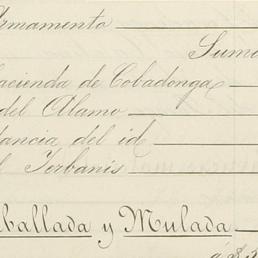 Armamento
Suma
Hacienda de Cobadonga
del Alamo
Estancia del id
el Torbanis
Caballada y Mulada
á $5